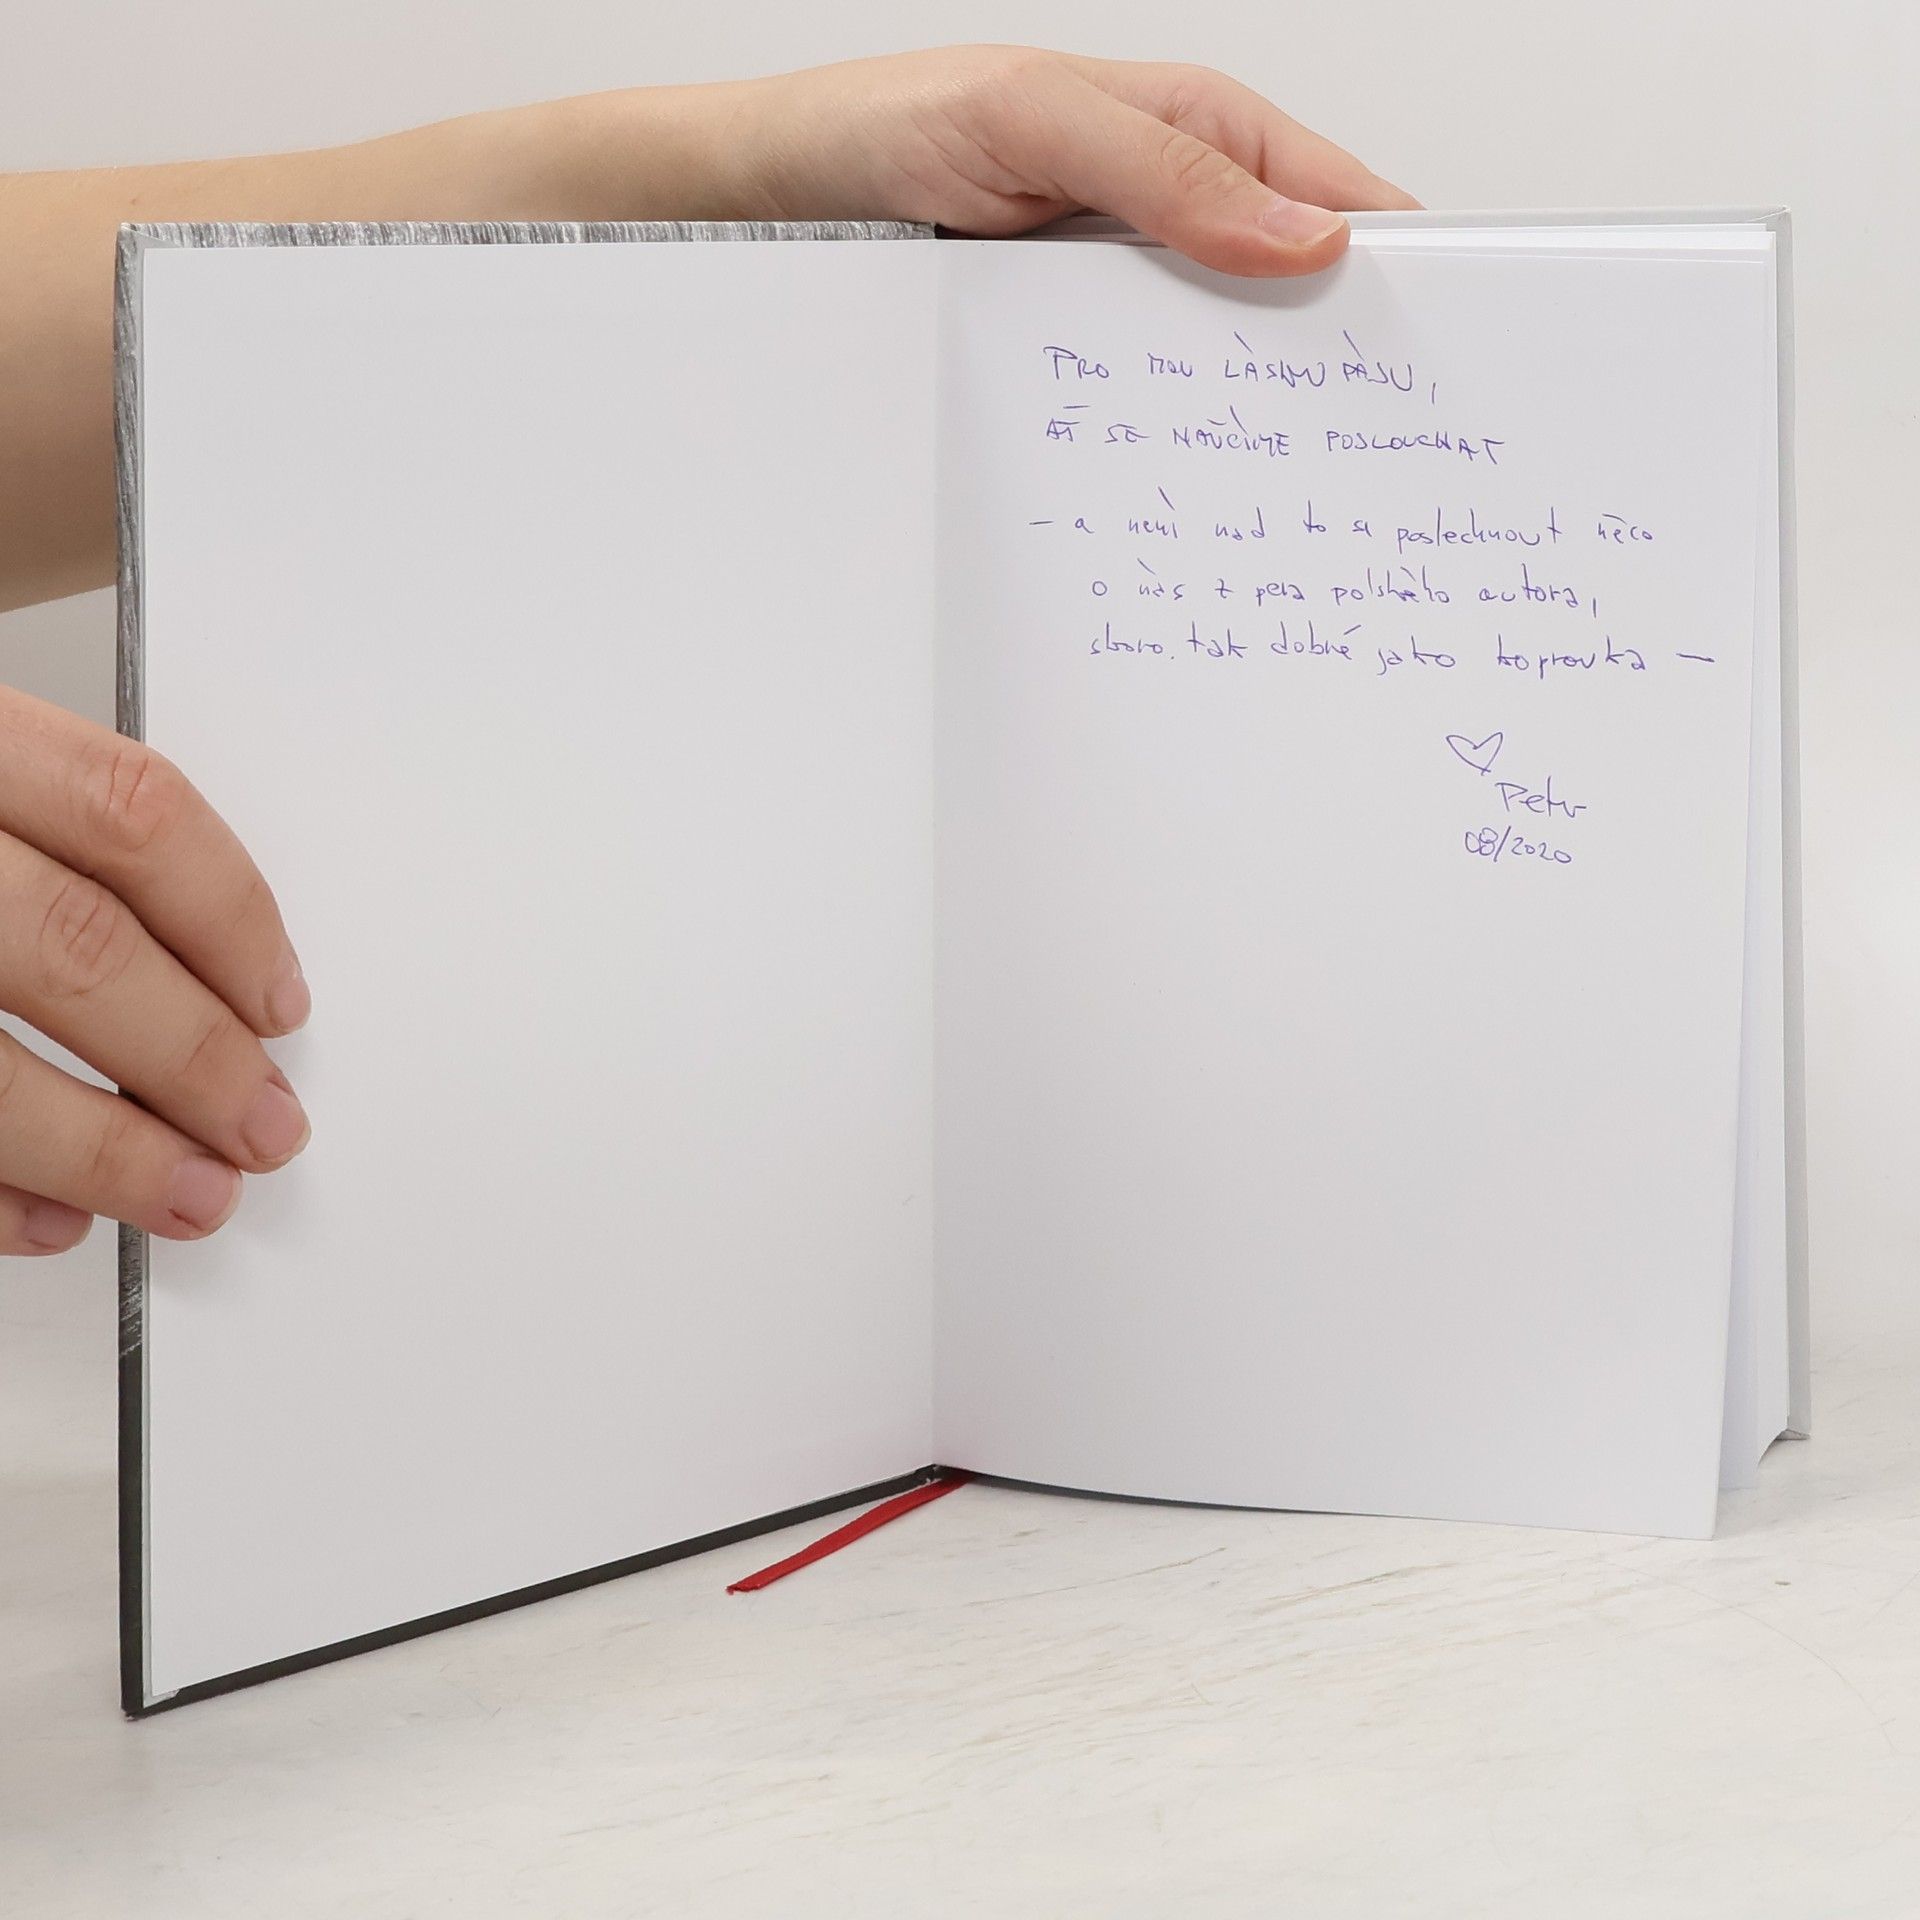 PRO MOU LÁSKU PÁJU,
AŤ SE NAUČÍME POSLOUCHAT
– a není nad to si poslechnout něco
o nás z pera polského autora,
skoro tak dobré jako koprovka –
♡
Petr
08/2020